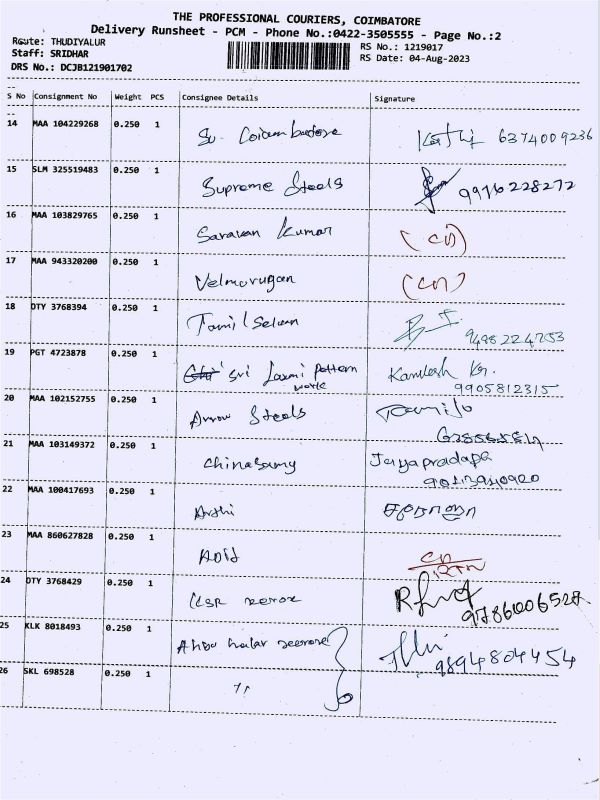 THE PROFESSIONAL COURIERS, COIMBATORE
Delivery Runsheet - PCM - Phone No.:0422-3505555 - Page No.:2
Route: THUDIYALUR
Staff: SRIDHAR
DRS No.: DCJB121901702
RS No.: 1219017
RS Date: 04-Aug-2023
S No Consignment No Weight PCS Consignee Details Signature
14 MAA 104229268 0.250 1 Coimbatore 6374009236
15 SLM 325519483 0.250 1 Supreme Steels 9976228272
16 MAA 103829765 0.250 1 Saravan Kumar
17 MAA 943320200 0.250 1 Velmurugan
18 DTY 3768394 0.250 1 Tamil Selvan
19 PGT 4723878 0.250 1 Sri Laxmi Pattern Kamlesh Kr.
works 9905812315
20 MAA 102152755 0.250 1 Arrow Steels
21 MAA 103149372 0.250 1 Chinasamy Jayapradapa
22 MAA 100417693 0.250 1 Arthi
23 MAA 860627828 0.250 1
24 DTY 3768429 0.250 1 KSR xerox
9786006528
25 KLK 8018493 0.250 1
9894804454
26 SKL 698528 0.250 1